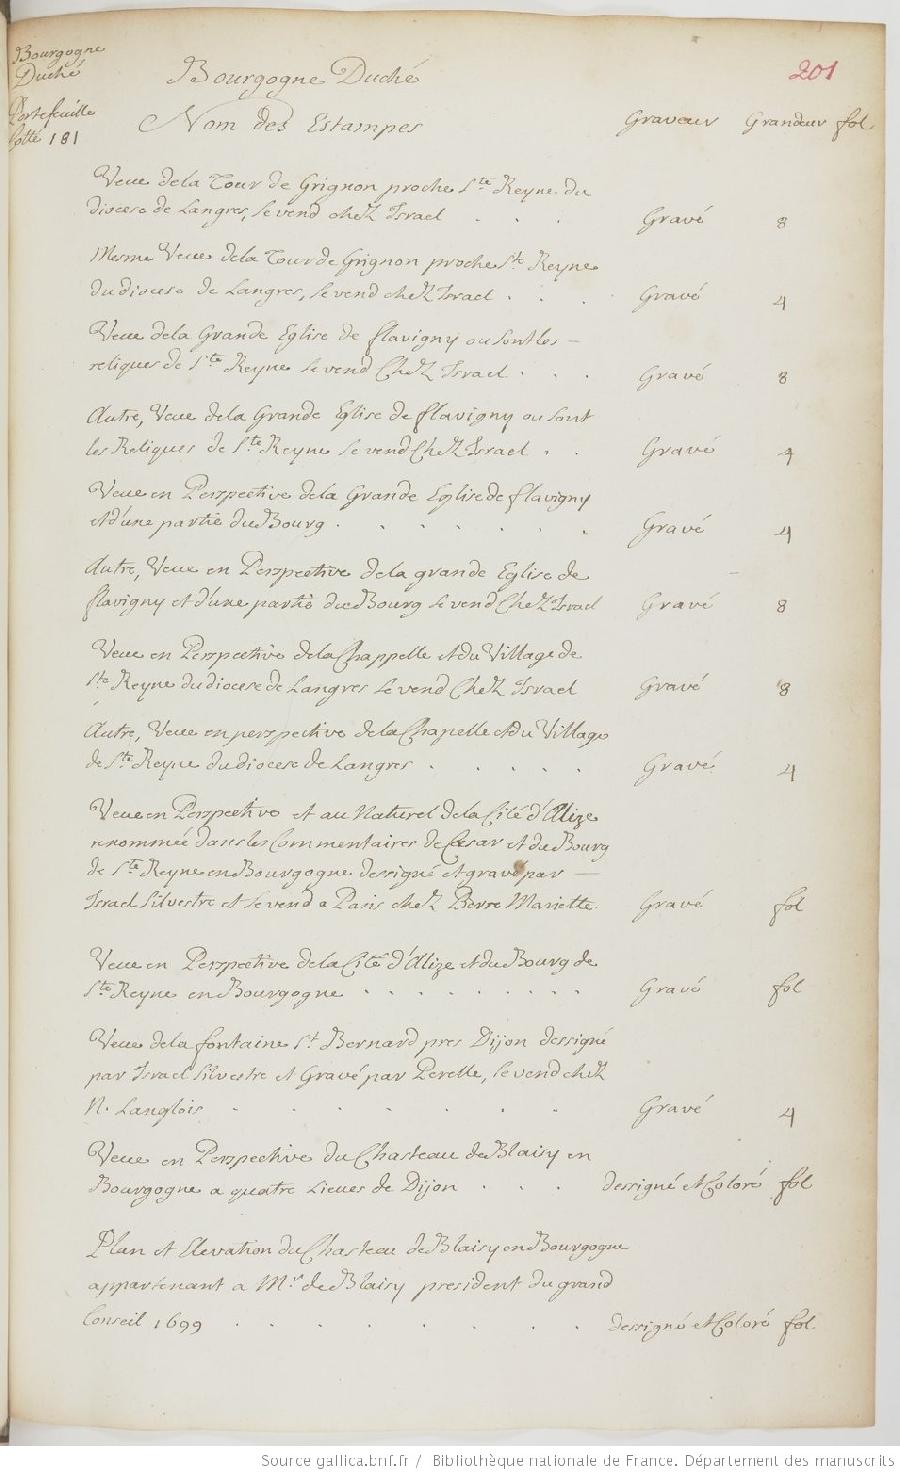 Bourgogne
Duché
Portefeuille
Cotté 181
Bourgogne Duché
201
Nom des Estampes Graveur Grandeur fol.
Veue de la Tour de Grignon proche Ste Reyne du
diocese de Langres, se vend chez Israel . . . Gravé 8
Mesme Veue de la Tour de Grignon proche Ste Reyne
du diocese de Langres, se vend chez Israel . . . Gravé 4
Veue de la Grande Eglise de flavigny ou sont les -
reliques de Ste Reyne se vend Chez Israel . . . Gravé 8
Autre, Veue de la Grande Eglise de flavigny ou sont
les Reliques de Ste Reyne se vend Chez Israel . . Gravé 4
Veue en Perspective de la Grande Eglise de flavigny
et d'une partie du Bourg . . . . . . . Gravé 4
Autre, Veue en Perspective de la grande Eglise de
flavigny et d'une partie du Bourg se vend Chez Israel Gravé 8
Veue en Perspective de la Chappelle et du Village de
Ste Reyne du diocese de Langres se vend Chez Israel Gravé 8
Autre, Veue en perspective de la Chapelle et du Village
de Ste Reyne du diocese de Langres . . . . . Gravé 4
Veue en Perspective et au Naturel de la Cité d'Alize
renommée dans les Commentaires de Cesar et du Bourg
de Ste Reyne en Bourgogne dessigné et gravé par —
Israel Silvestre et se vend a Paris chez Pierre Mariette. Gravé fol
Veue en Perspective de la Cité d'Alize et du Bourg de
Ste Reyne en Bourgogne . . . . . . . . . Gravé fol
Veue de la fontaine St Bernard pres Dijon dessigné
par Israel Silvestre et Gravé par Perelle, se vend chez
N. Langlois . . . . . . . Gravé 4
Veue en Perspective du Chasteau de Blaisy en
Bourgogne a quatre Lieues de Dijon . . . dessigné et Coloré fol
Plan et Elevation du Chasteau de Blaisy en Bourgogne
appartenant a Mr de Blaisy president du grand
Conseil 1699 . . . . . . . . dessigné et Coloré fol.
Source gallica.bnf.fr / Bibliothèque nationale de France. Département des manuscrits